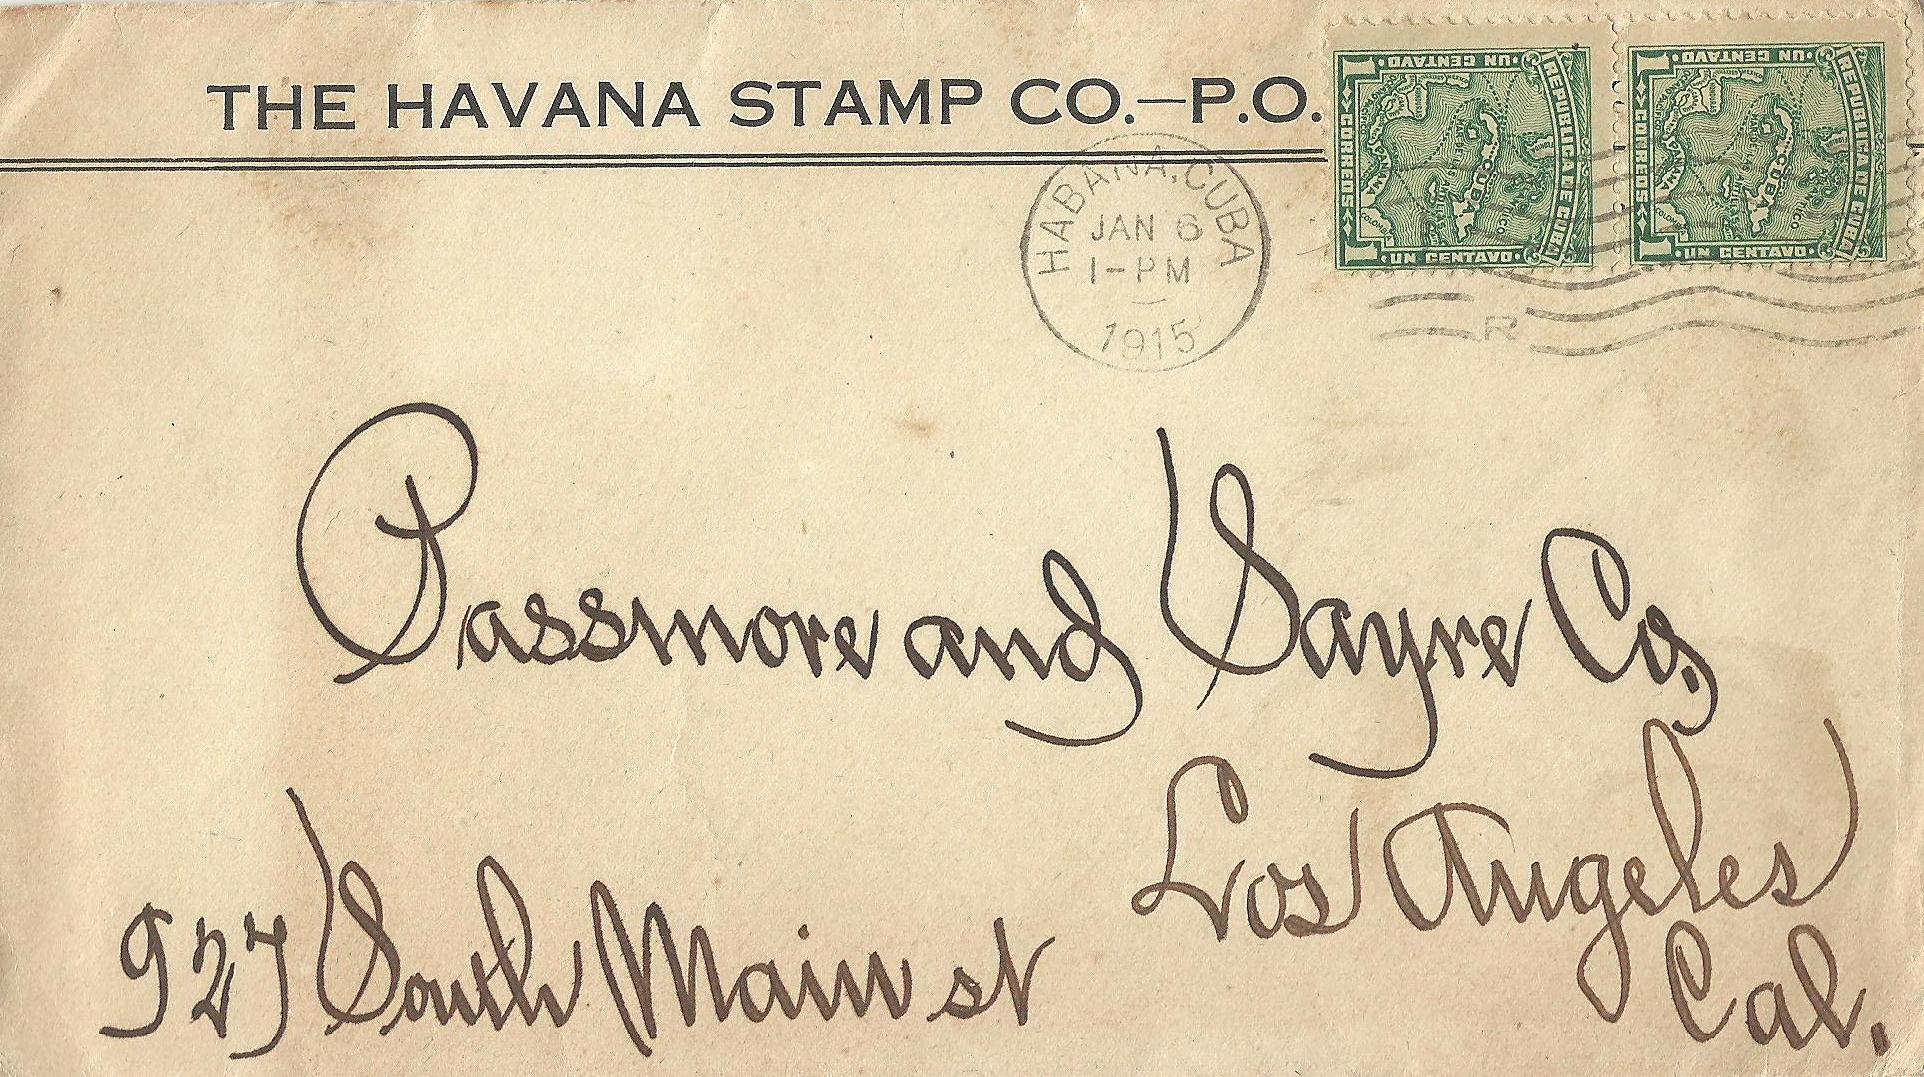 THE HAVANA STAMP CO.—P.O.
HABANA, CUBA
JAN 6
1-PM
1915
R
1 · UN CENTAVO ·
REPUBLICA DE CUBA
CORREOS
CUBA
COLOMBIA
1 · UN CENTAVO ·
1 · UN CENTAVO ·
REPUBLICA DE CUBA
CORREOS
CUBA
COLOMBIA
1 · UN CENTAVO ·
Passmore and Sayre Co.
927 South Main st
Los Angeles
Cal.